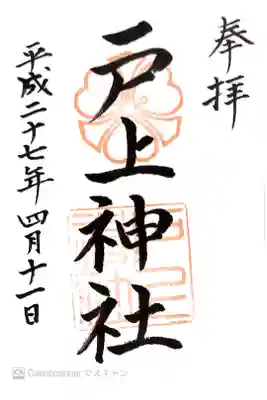 奉拝
戸上神社
平成二十七年四月十一日
CamScannerでスキャン